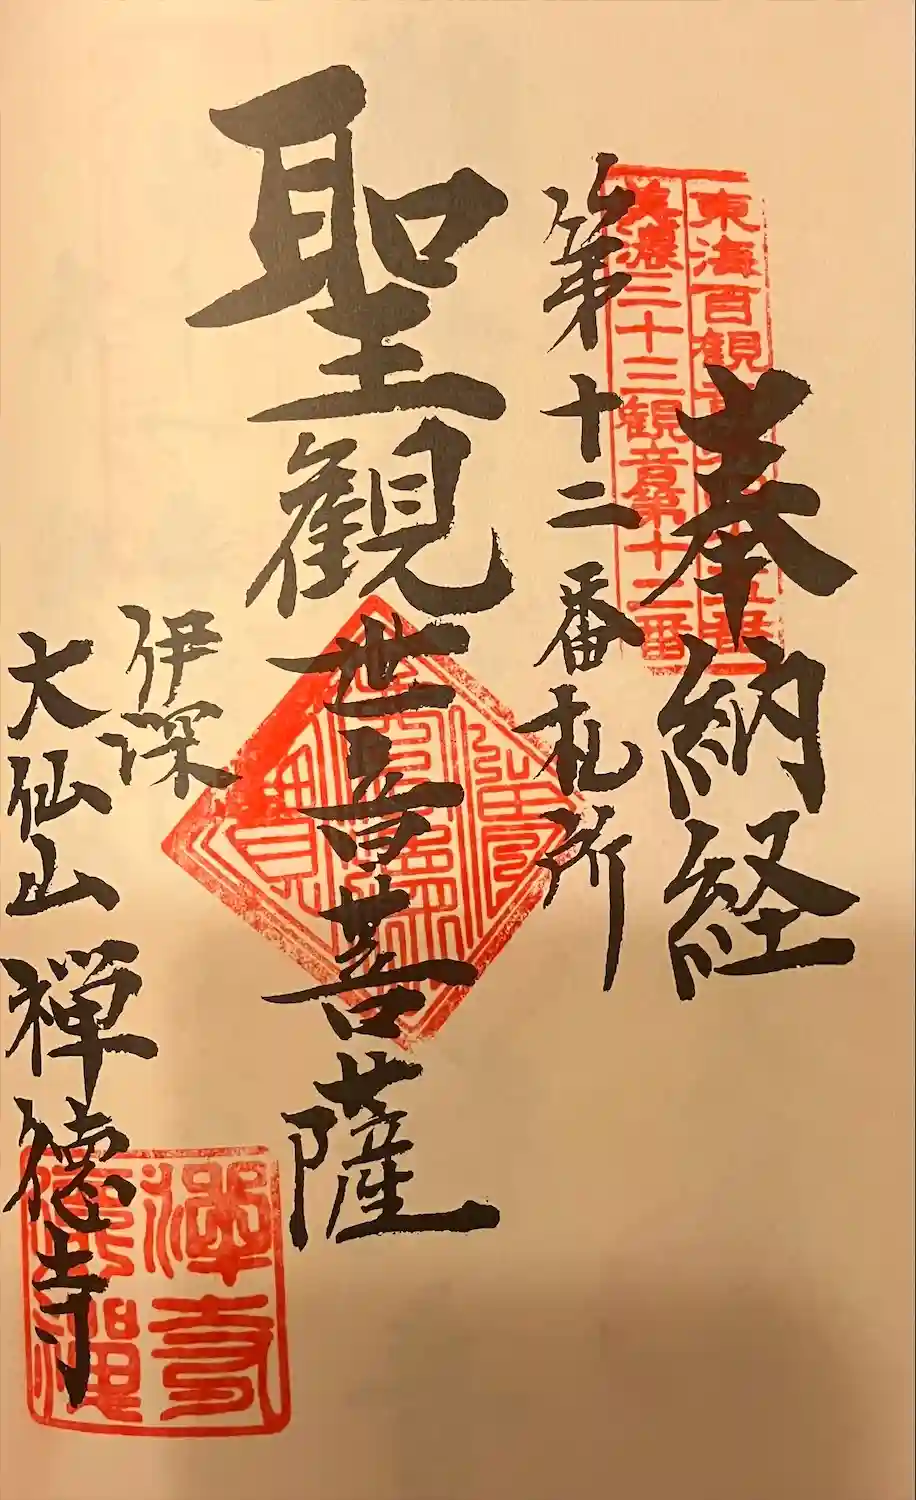 東海百観音
美濃三十三観音第十二番
奉納経
第十二番札所
聖観世音菩薩
伊深
大仙山 禅徳寺